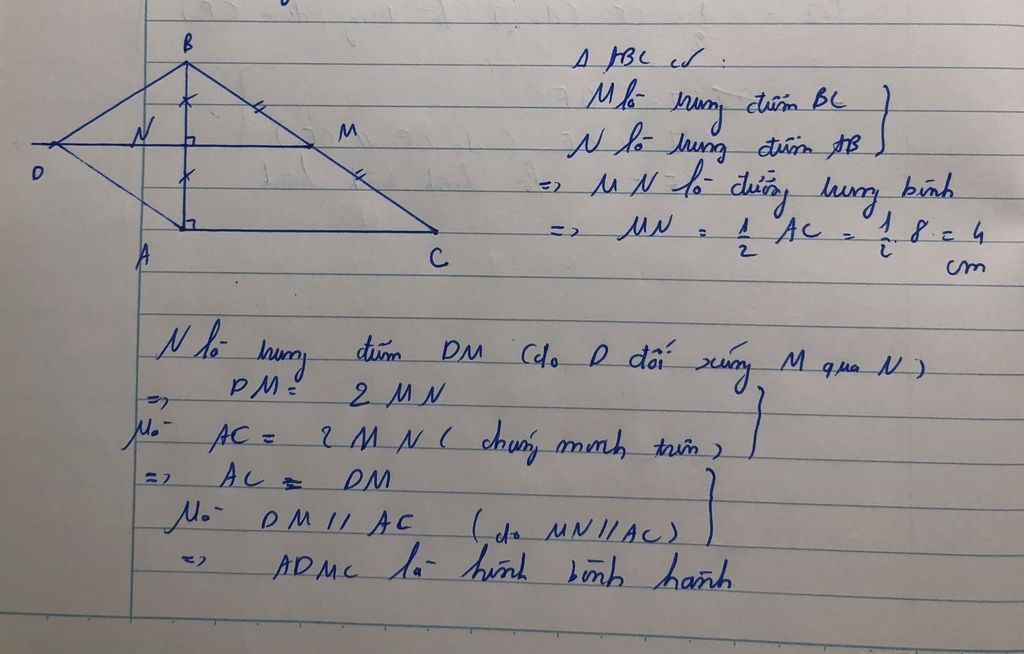 B
N
M
D
A
C
Δ ABC có :
M là trung điểm BC
N là trung điểm AB
=> MN là đường trung bình
=> MN = 1/2 AC = 1/2 . 8 = 4
cm
N là trung điểm DM (do D đối xứng M qua N)
=> DM = 2 MN
Mà AC = 2 MN ( chứng minh trên )
=> AC = DM
Mà DM // AC (do MN // AC)
=> ADMC là hình bình hành